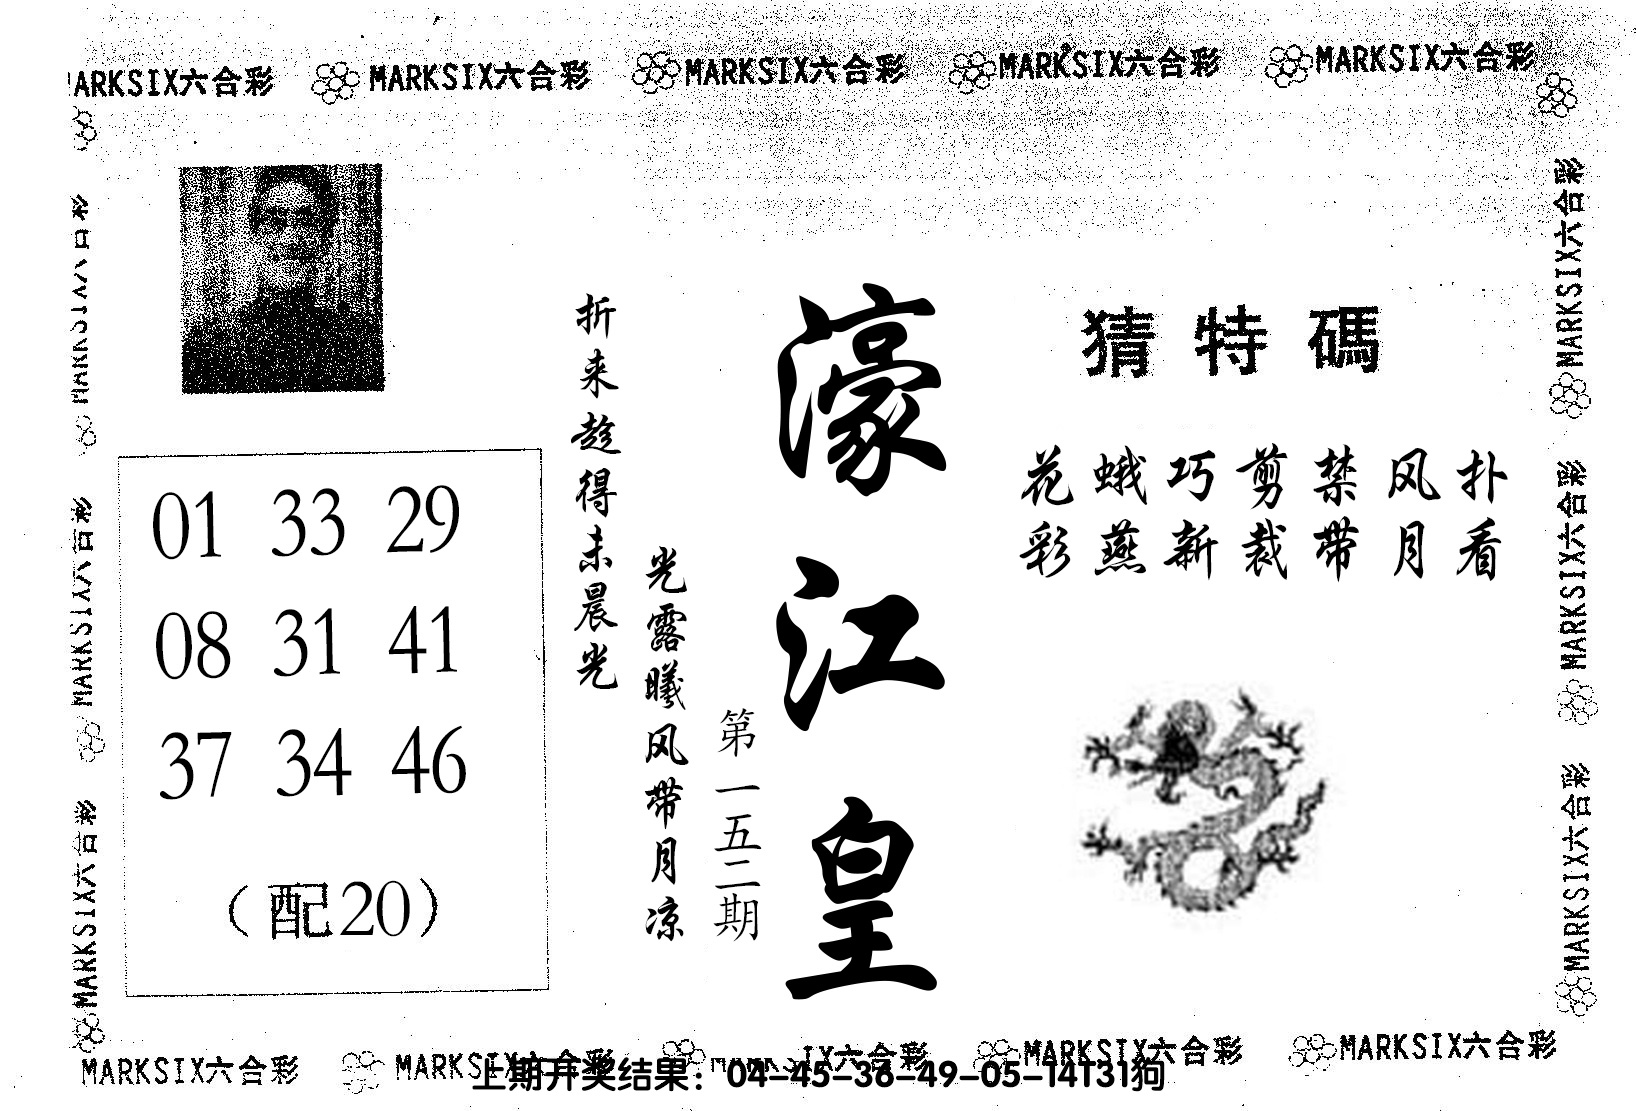 MARKSIX六合彩 MARKSIX六合彩 MARKSIX六合彩 MARKSIX六合彩
猜特碼
花蛾巧剪禁风扑
彩燕新裁带月看
濠江皇
第一五二期
光露曦风带月凉
折来趁得未晨光
01 33 29
08 31 41
37 34 46
（配20）
MARKSIX六合彩
MARKSIX六合彩
MARKSIX六合彩
MARKSIX六合彩
MARKSIX六合彩
MARKSIX六合彩 MARKSIX六合彩 MARKSIX六合彩 MARKSIX六合彩
上期开奖结果：04-45-36-49-05-14T31狗